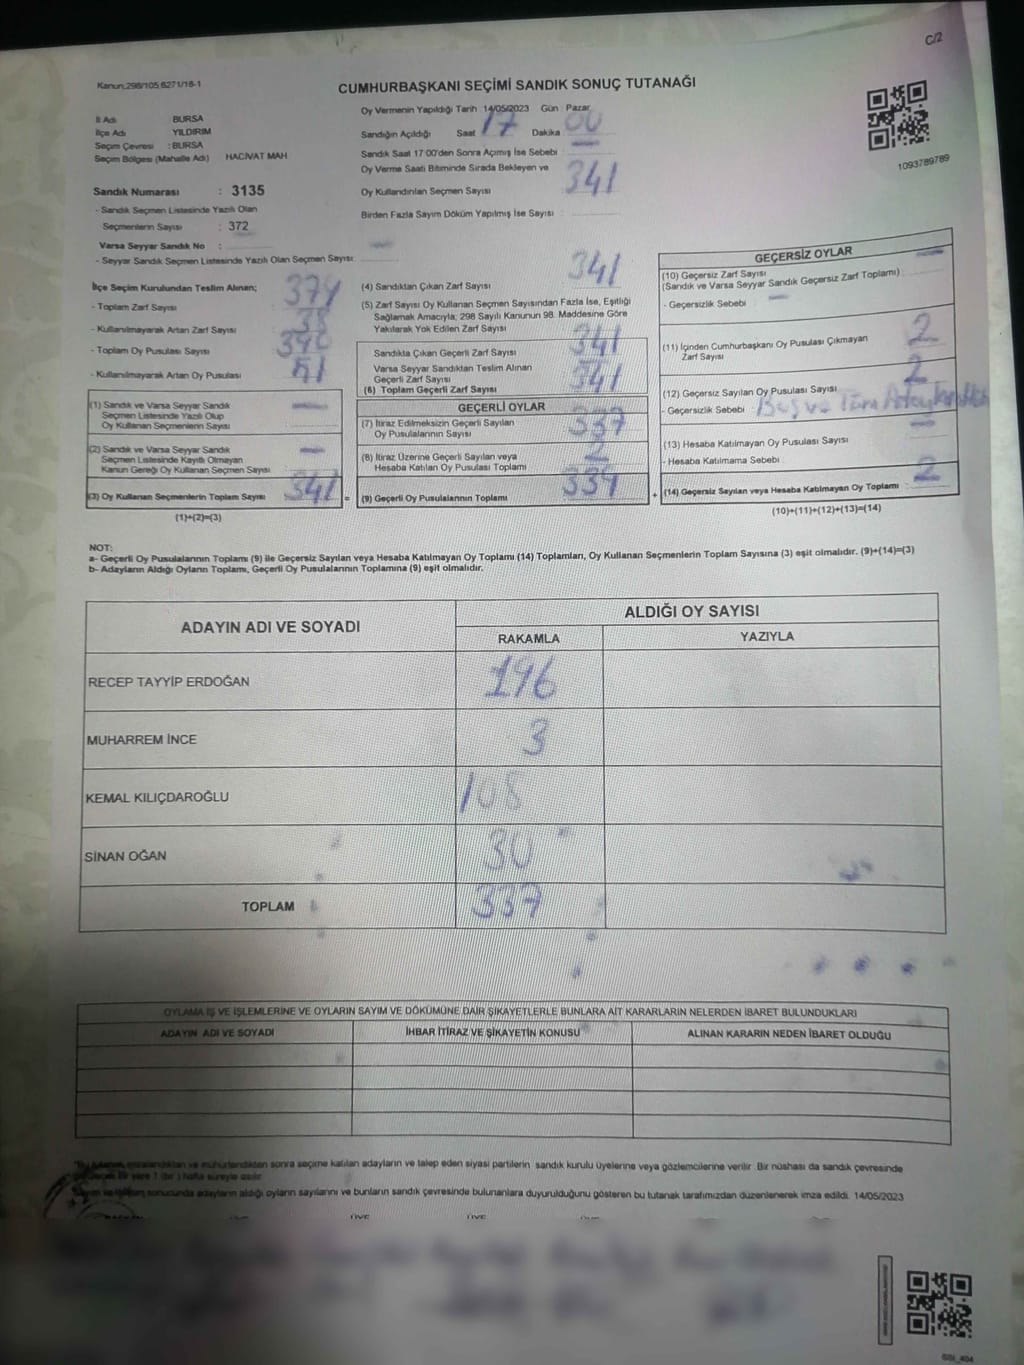 C/2
Kanun:298/105,6271/18-1
CUMHURBAŞKANI SEÇİMİ SANDIK SONUÇ TUTANAĞI
İl Adı BURSA
İlçe Adı YILDIRIM
Seçim Çevresi : BURSA
Seçim Bölgesi (Mahalle Adı) HACİVAT MAH
Sandık Numarası : 3135
- Sandık Seçmen Listesinde Yazılı Olan
Seçmenlerin Sayısı : 372
Varsa Seyyar Sandık No :
- Seyyar Sandık Seçmen Listesinde Yazılı Olan Seçmen Sayısı
Oy Vermenin Yapıldığı Tarih 14/05/2023 Gün Pazar
Sandığın Açıldığı Saat 17 Dakika 00
Sandık Saat 17:00'den Sonra Açımış İse Sebebi
Oy Verme Saati Bitiminde Sırada Bekleyen ve
Oy Kullandırılan Seçmen Sayısı 341
Birden Fazla Sayım Döküm Yapılmış İse Sayısı :
1093789789
İlçe Seçim Kurulundan Teslim Alınan;
- Toplam Zarf Sayısı 379
- Kullanılmayarak Artan Zarf Sayısı 38
- Toplam Oy Pusulası Sayısı
- Kullanılmayarak Artan Oy Pusulası 51
(1) Sandık ve Varsa Seyyar Sandık
Seçmen Listesinde Yazılı Olup
Oy Kullanan Seçmenlerin Sayısı
(2) Sandık ve Varsa Seyyar Sandık
Seçmen Listesinde Kayıtlı Olmayan
Kanun Gereği Oy Kullanan Seçmen Sayısı
(3) Oy Kullanan Seçmenlerin Toplam Sayısı 341 =
(1)+(2)=(3)
(4) Sandıktan Çıkan Zarf Sayısı 341
(5) Zarf Sayısı Oy Kullanan Seçmen Sayısından Fazla İse, Eşitliği
Sağlamak Amacıyla; 298 Sayılı Kanunun 98. Maddesine Göre
Yakılarak Yok Edilen Zarf Sayısı
Sandıkta Çıkan Geçerli Zarf Sayısı 341
Varsa Seyyar Sandıktan Teslim Alınan
Geçerli Zarf Sayısı
(6) Toplam Geçerli Zarf Sayısı 341
GEÇERLİ OYLAR
(7) İtiraz Edilmeksizin Geçerli Sayılan
Oy Pusulalarının Sayısı 337
(8) İtiraz Üzerine Geçerli Sayılan veya
Hesaba Katılan Oy Pusulası Toplamı 2
(9) Geçerli Oy Pusulalarının Toplamı 339 +
GEÇERSİZ OYLAR
(10) Geçersiz Zarf Sayısı
(Sandık ve Varsa Seyyar Sandık Geçersiz Zarf Toplamı) :
- Geçersizlik Sebebi
(11) İçinden Cumhurbaşkanı Oy Pusulası Çıkmayan
Zarf Sayısı 2
(12) Geçersiz Sayılan Oy Pusulası Sayısı 2
- Geçersizlik Sebebi : Boş ve Tüm
(13) Hesaba Katılmayan Oy Pusulası Sayısı
- Hesaba Katılmama Sebebi
(14) Geçersiz Sayılan veya Hesaba Katılmayan Oy Toplamı : 2
(10)+(11)+(12)+(13)=(14)
NOT:
a- Geçerli Oy Pusulalarının Toplamı (9) ile Geçersiz Sayılan veya Hesaba Katılmayan Oy Toplamı (14) Toplamları, Oy Kullanan Seçmenlerin Toplam Sayısına (3) eşit olmalıdır. (9)+(14)=(3)
b- Adayların Aldığı Oyların Toplamı, Geçerli Oy Pusulalarının Toplamına (9) eşit olmalıdır.
ADAYIN ADI VE SOYADI ALDIĞI OY SAYISI
RAKAMLA YAZIYLA
RECEP TAYYİP ERDOĞAN 196
MUHARREM İNCE 3
KEMAL KILIÇDAROĞLU 108
SİNAN OĞAN 30
TOPLAM 337
OYLAMA İŞ VE İŞLEMLERİNE VE OYLARIN SAYIM VE DÖKÜMÜNE DAİR ŞİKAYETLERLE BUNLARA AİT KARARLARIN NELERDEN İBARET BULUNDUKLARI
ADAYIN ADI VE SOYADI İHBAR İTİRAZ VE ŞİKAYETİN KONUSU ALINAN KARARIN NEDEN İBARET OLDUĞU
imzalandıktan ve mühürlendikten sonra seçime katılan adayların ve talep eden siyasi partilerin sandık kurulu üyelerine veya gözlemcilerine verilir. Bir nüshası da sandık çevresinde
yere 1 (bir) hafta süreyle asılır.
sonucunda adayların aldığı oyların sayılarını ve bunların sandık çevresinde bulunanlara duyurulduğunu gösteren bu tutanak tarafımızdan düzenlenerek imza edildi. 14/05/2023
ÜYE ÜYE